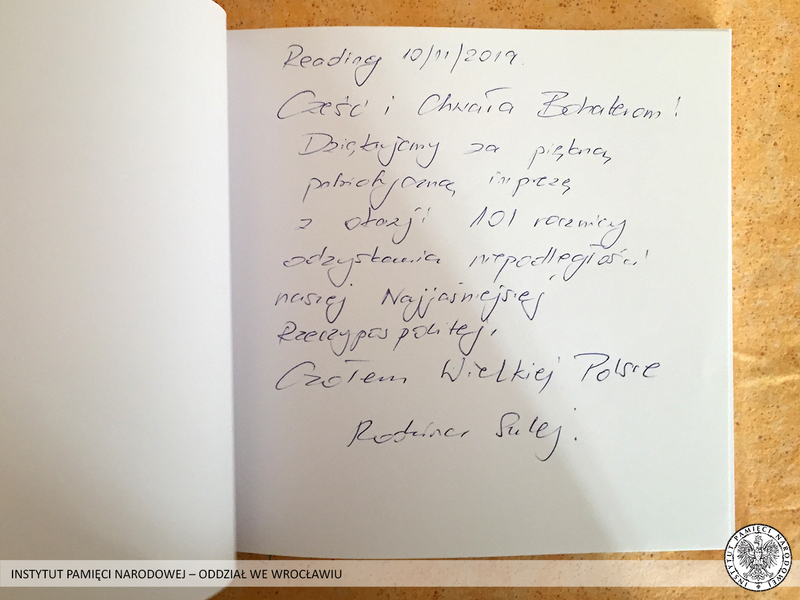 Reading 10/11/2019.
Cześć i Chwała Bohaterom!
Dziękujemy za piękną
patriotyczną imprezę
z okazji 101 rocznicy
odzyskania niepodległości
naszej Najjaśniejszej
Rzeczypospolitej,
Czołem Wielkiej Polsce
Rodzina Sulej.
INSTYTUT PAMIĘCI NARODOWEJ – ODDZIAŁ WE WROCŁAWIU
INSTYTUT PAMIĘCI NARODOWEJ